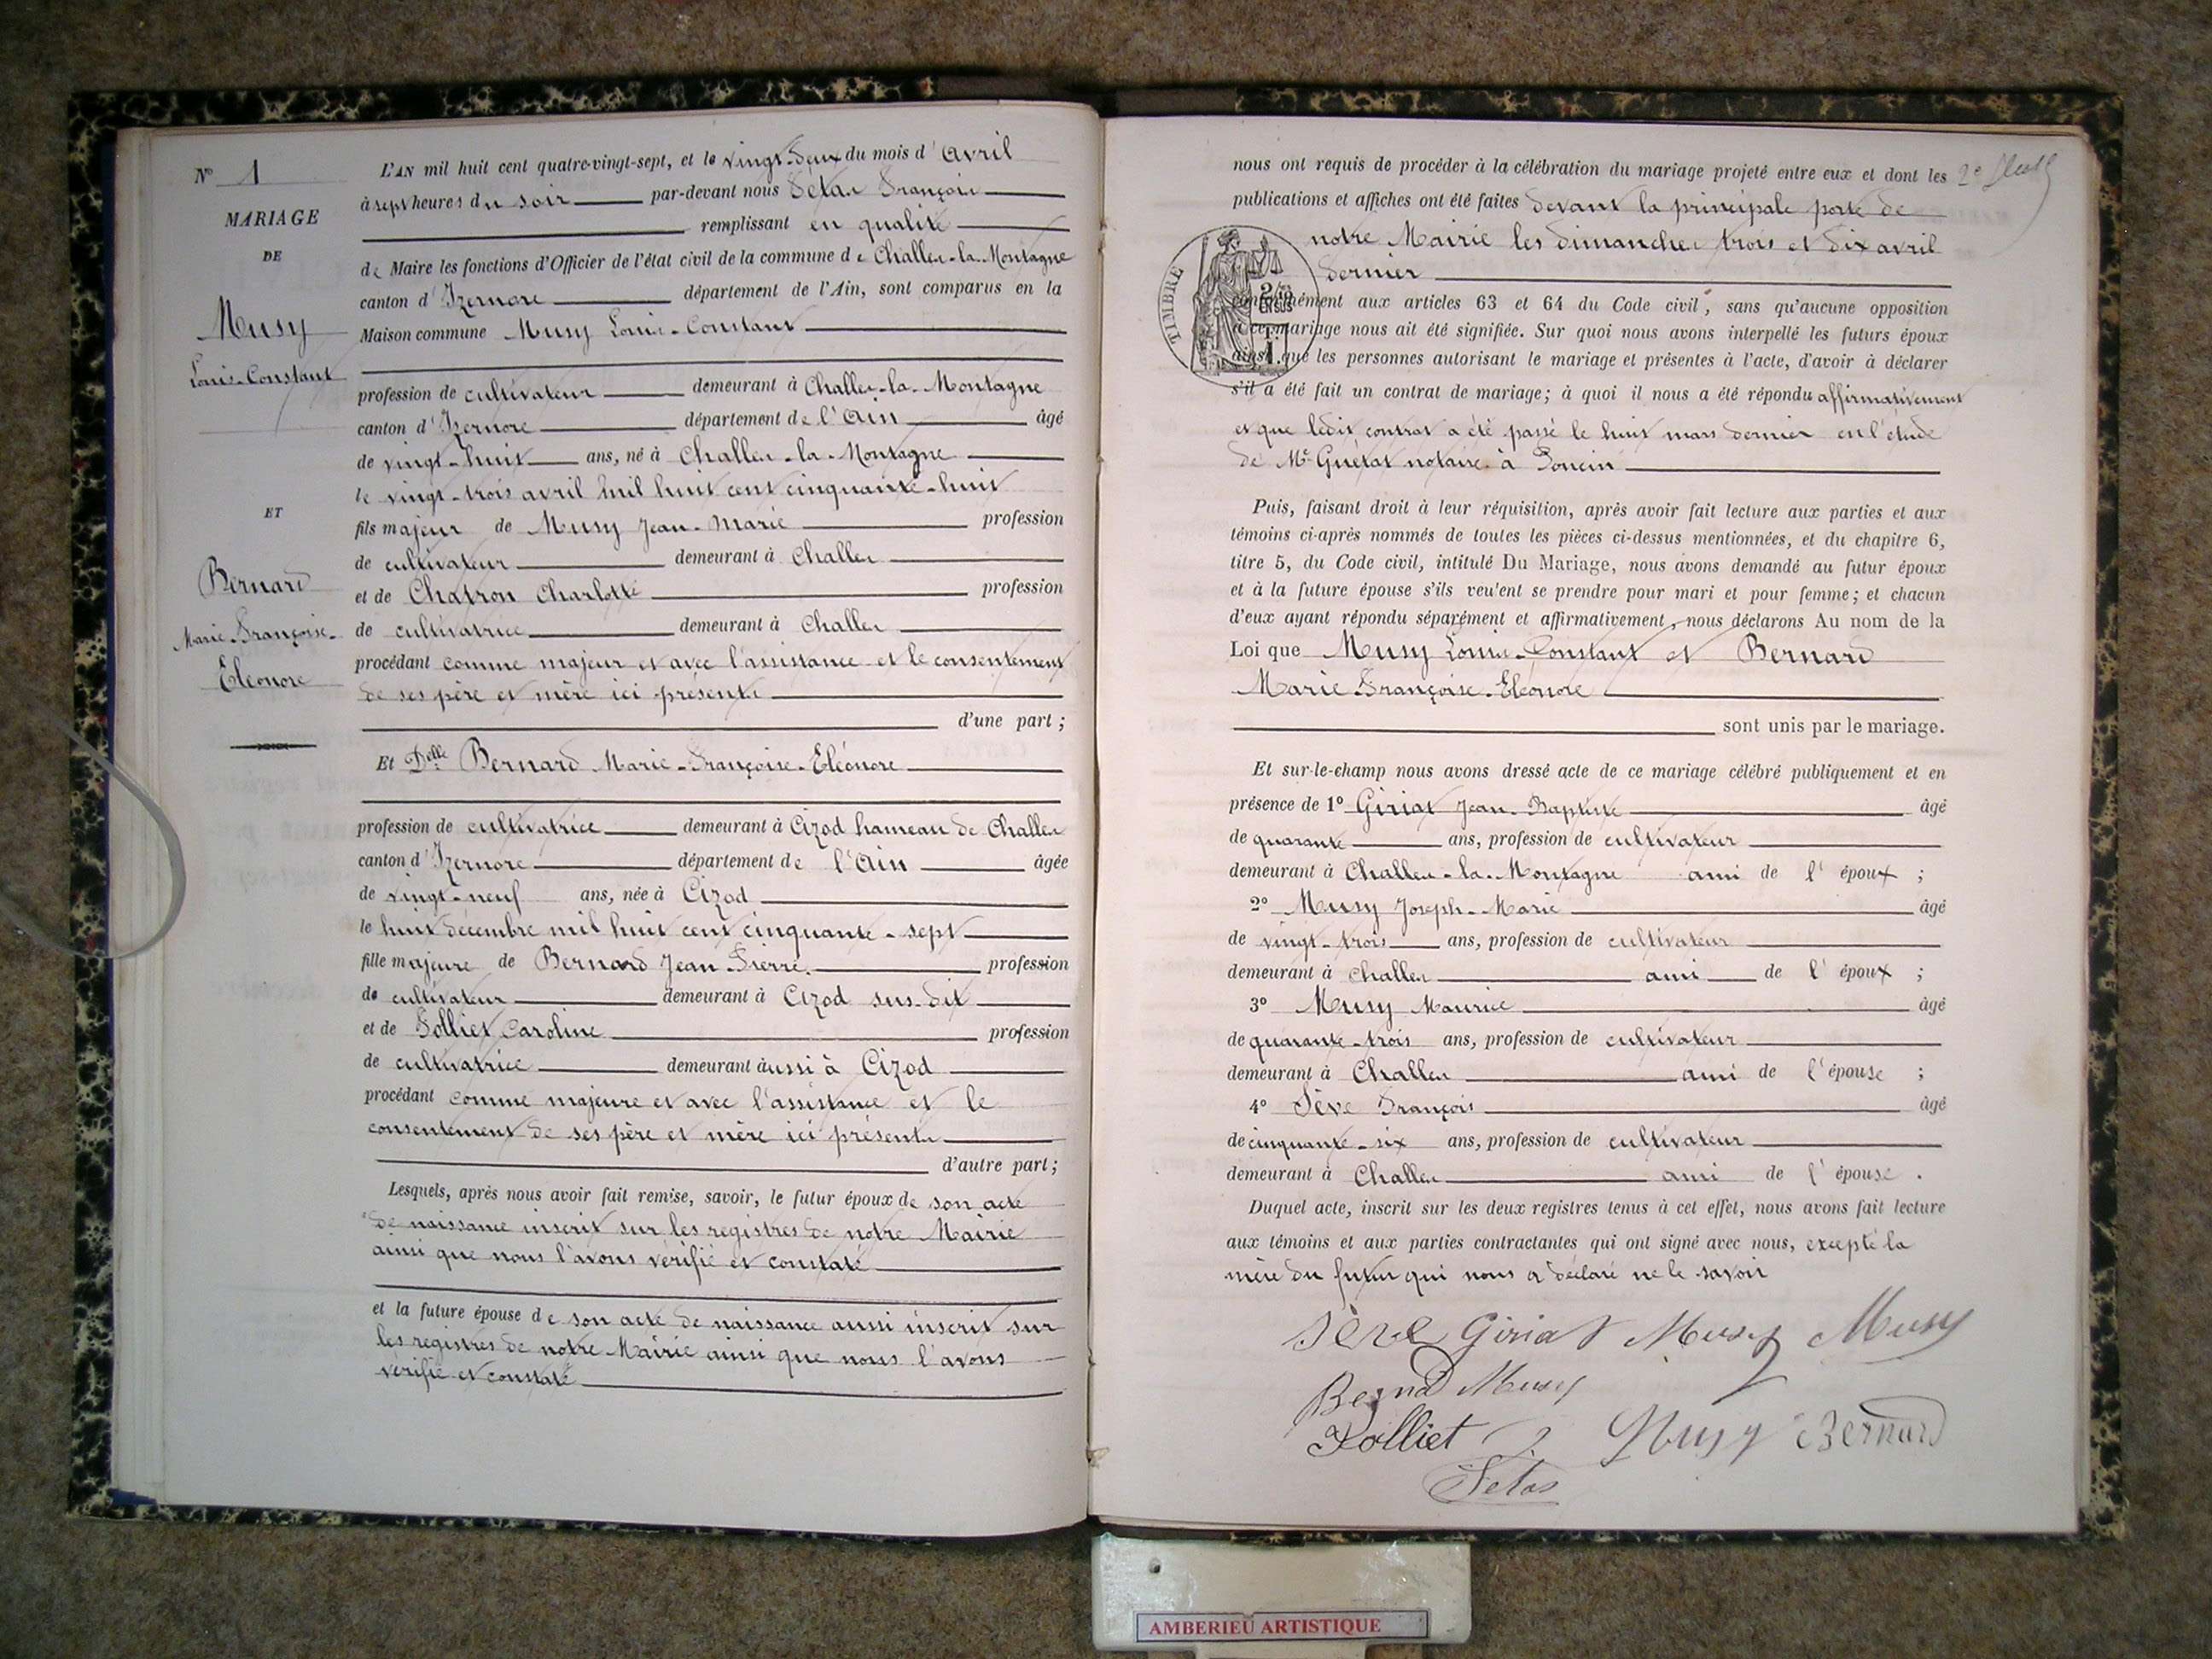 N° 1
MARIAGE
DE
Musy
Louis-Constant
ET
Bernard
Marie-Françoise-
Eléonore
L'AN mil huit cent quatre-vingt-sept, et le vingt-deux du mois d'avril
à sept heures du soir par-devant nous François
remplissant en qualité
de Maire les fonctions d'Officier de l'état civil de la commune de Challes-la-Montagne
canton d'Izernore département de l'Ain, sont comparus en la
Maison commune Musy Louis-Constant
profession de cultivateur demeurant à Challes-la-Montagne
canton d'Izernore département de l'Ain âgé
de vingt-huit ans, né à Challes-la-Montagne
le vingt-trois avril mil huit cent cinquante-huit
fils majeur de Musy Jean-Marie profession
de cultivateur demeurant à Challes
et de Chatron Charlotte profession
de cultivatrice demeurant à Challes
procédant comme majeur et avec l'assistance et le consentement
de ses père et mère ici présents
d'une part ;
Et Delle Bernard Marie-Françoise-Eléonore
profession de cultivatrice demeurant à Cizod hameau de Challes
canton d'Izernore département de l'Ain âgée
de vingt-neuf ans, née à Cizod
le huit décembre mil huit cent cinquante-sept
fille majeure de Bernard Jean Pierre profession
de cultivateur demeurant à Cizod sus-dit
et de Folliet Caroline profession
de cultivatrice demeurant aussi à Cizod
procédant comme majeure et avec l'assistance et le
consentement de ses père et mère ici présents
d'autre part ;
Lesquels, après nous avoir fait remise, savoir, le futur époux de son acte
de naissance inscrit sur les registres de notre Mairie
ainsi que nous l'avons vérifié et constaté
et la future épouse de son acte de naissance aussi inscrit sur
les registres de notre Mairie ainsi que nous l'avons
vérifié et constaté
nous ont requis de procéder à la célébration du mariage projeté entre eux et dont les
publications et affiches ont été faites devant la principale porte de
notre Mairie les dimanches trois et dix avril
dernier
TIMBRE
conformément aux articles 63 et 64 du Code civil, sans qu'aucune opposition
à ce mariage nous ait été signifiée. Sur quoi nous avons interpellé les futurs époux
ainsi que les personnes autorisant le mariage et présentes à l'acte, d'avoir à déclarer
s'il a été fait un contrat de mariage ; à quoi il nous a été répondu affirmativement
et que ledit contrat a été passé le huit mars dernier en l'étude
de Me Guétat notaire à Poncin
Puis, faisant droit à leur réquisition, après avoir fait lecture aux parties et aux
témoins ci-après nommés de toutes les pièces ci-dessus mentionnées, et du chapitre 6,
titre 5, du Code civil, intitulé Du Mariage, nous avons demandé au futur époux
et à la future épouse s'ils veulent se prendre pour mari et pour femme ; et chacun
d'eux ayant répondu séparément et affirmativement, nous déclarons Au nom de la
Loi que Musy Louis-Constant et Bernard
Marie-Françoise-Eléonore
sont unis par le mariage.
Et sur-le-champ nous avons dressé acte de ce mariage célébré publiquement et en
présence de 1° Giriat Jean-Baptiste âgé
de quarante ans, profession de cultivateur
demeurant à Challes-la-Montagne ami de l'époux ;
2° Musy Joseph-Marie âgé
de vingt-trois ans, profession de cultivateur
demeurant à Challes ami de l'époux ;
3° Musy Maurice âgé
de quarante-trois ans, profession de cultivateur
demeurant à Challes ami de l'épouse ;
4° Sève François âgé
de cinquante-six ans, profession de cultivateur
demeurant à Challes ami de l'épouse .
Duquel acte, inscrit sur les deux registres tenus à cet effet, nous avons fait lecture
aux témoins et aux parties contractantes qui ont signé avec nous, excepté la
mère du futur qui nous a déclaré ne le savoir
Sève Giriat Musy Musy
Bernd Musy
Folliet Musy Bernard
AMBERIEU ARTISTIQUE